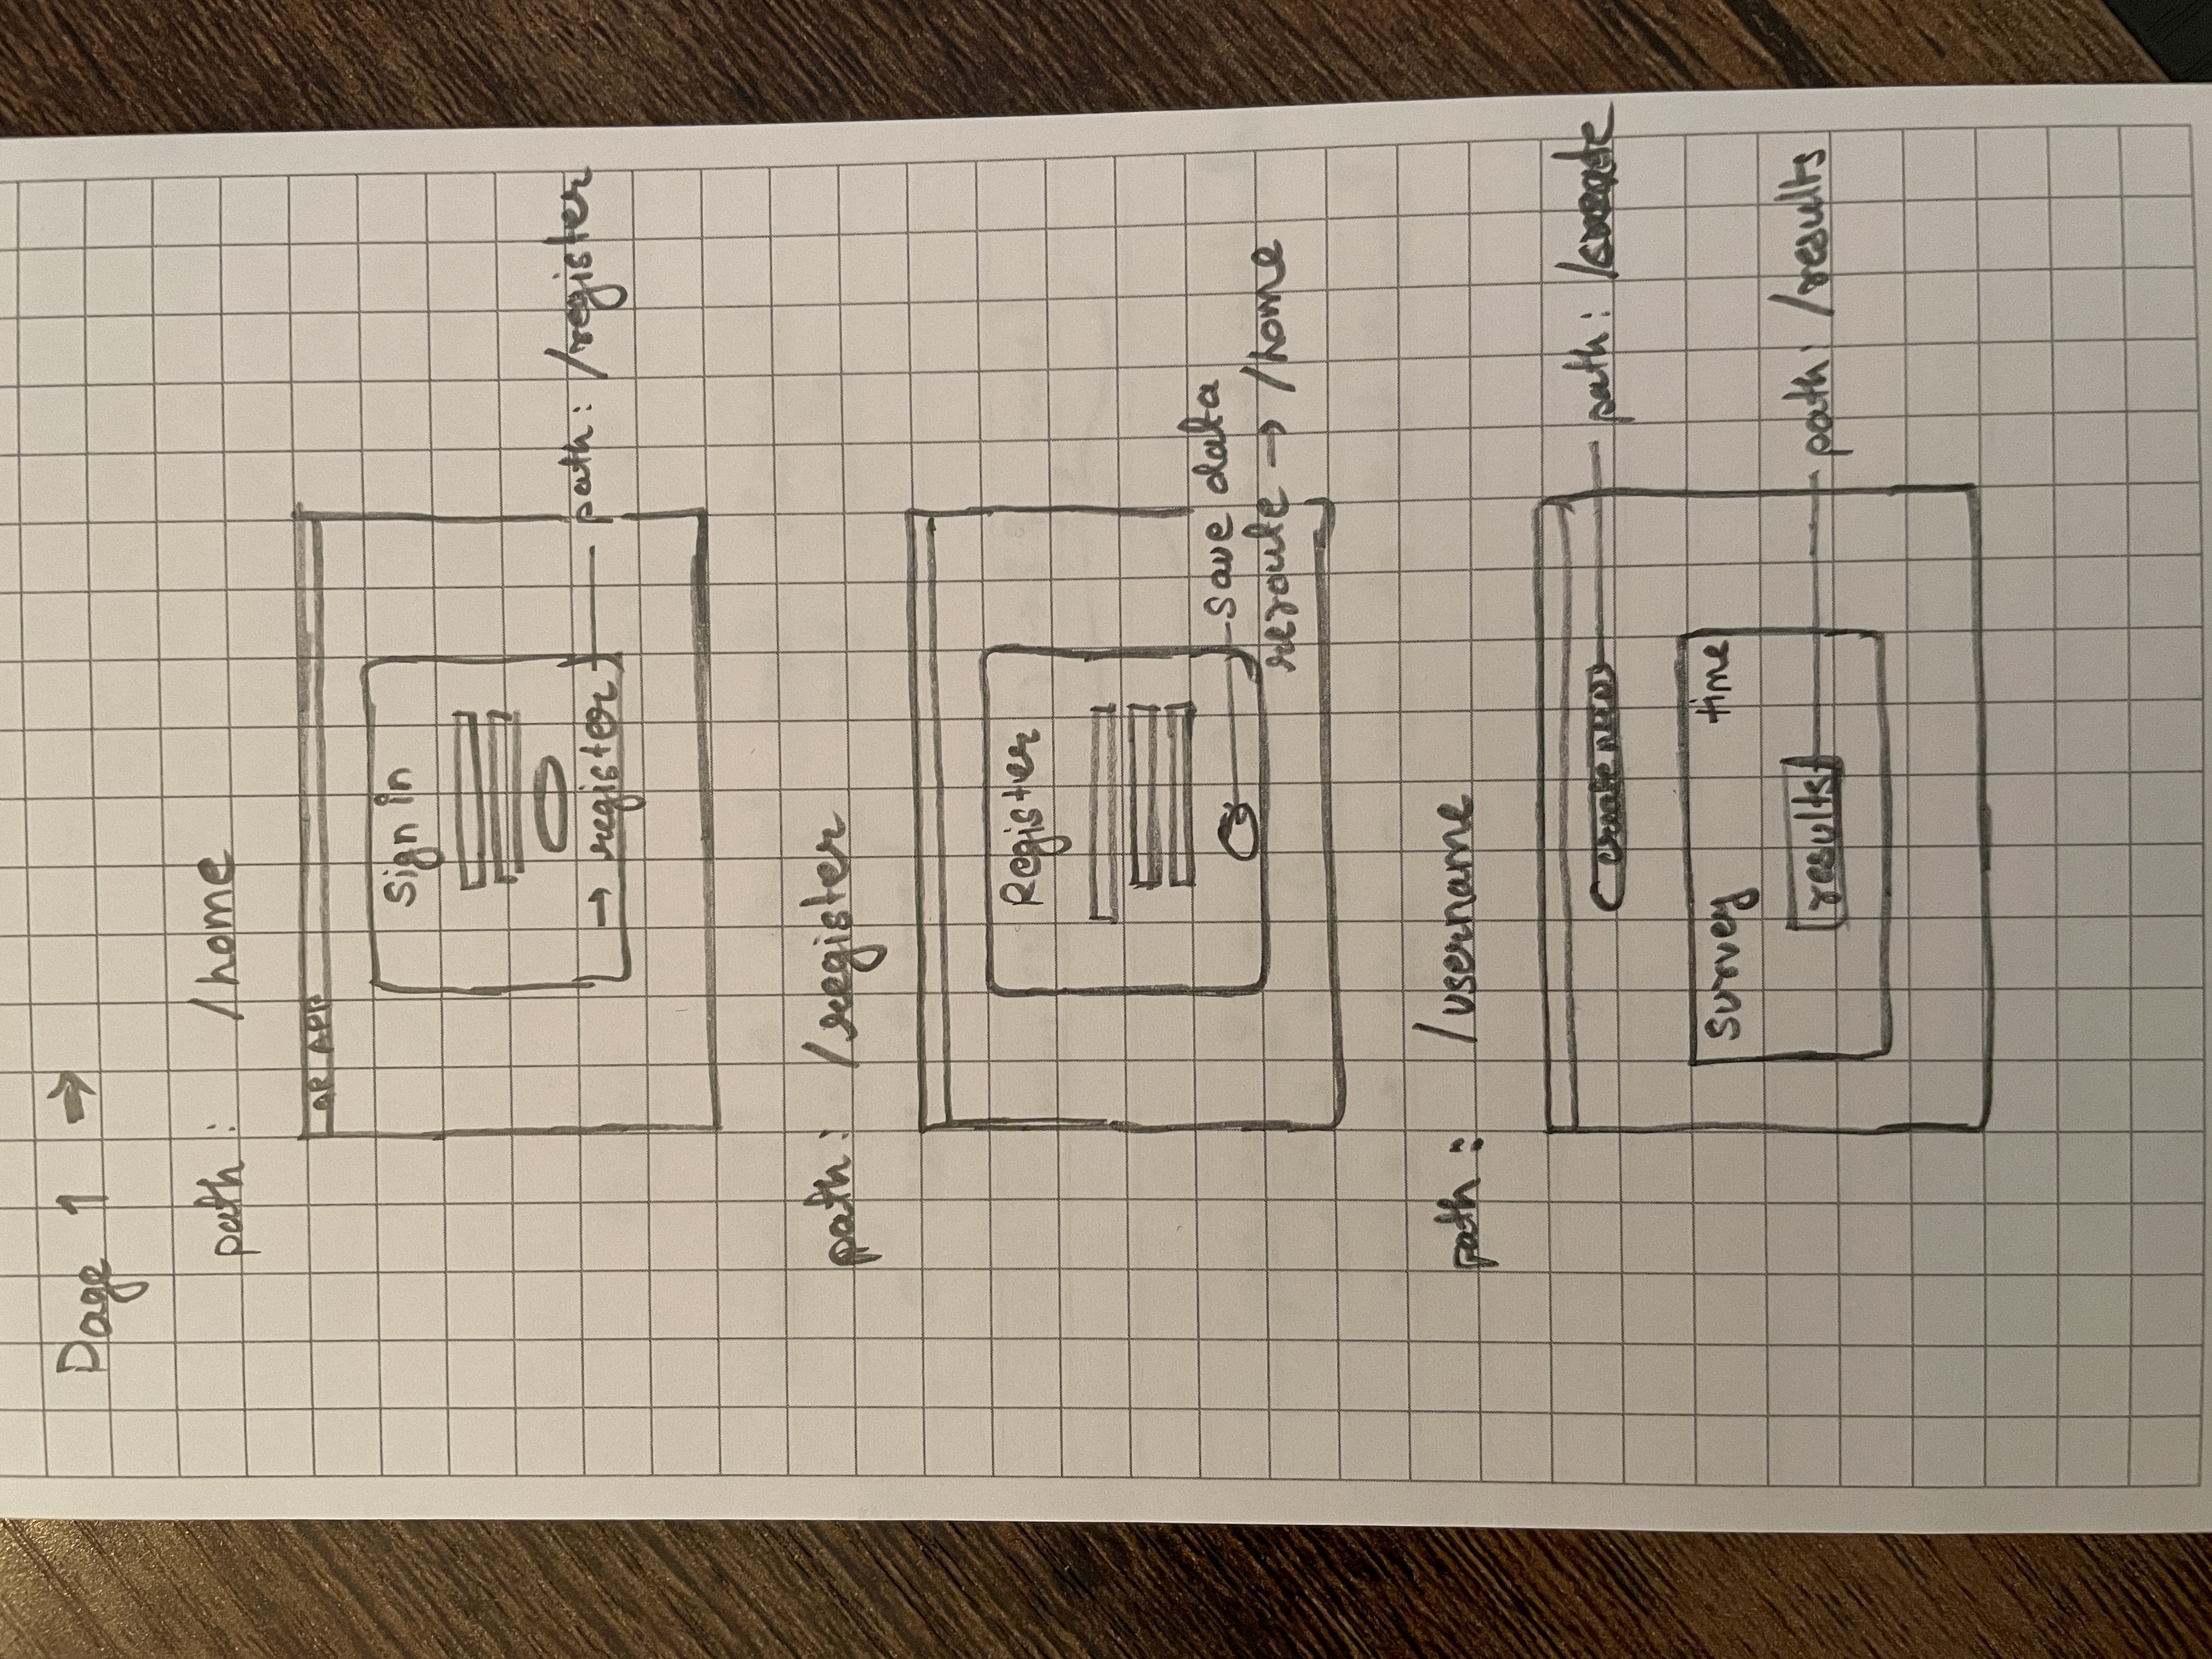 Page 1 →
path : /home
QR APP
Sign in
→ register
path: /register
path: /register
Register
save data
reroute → /home
path : /username
create new
path: /create
survey time
results
path: /results